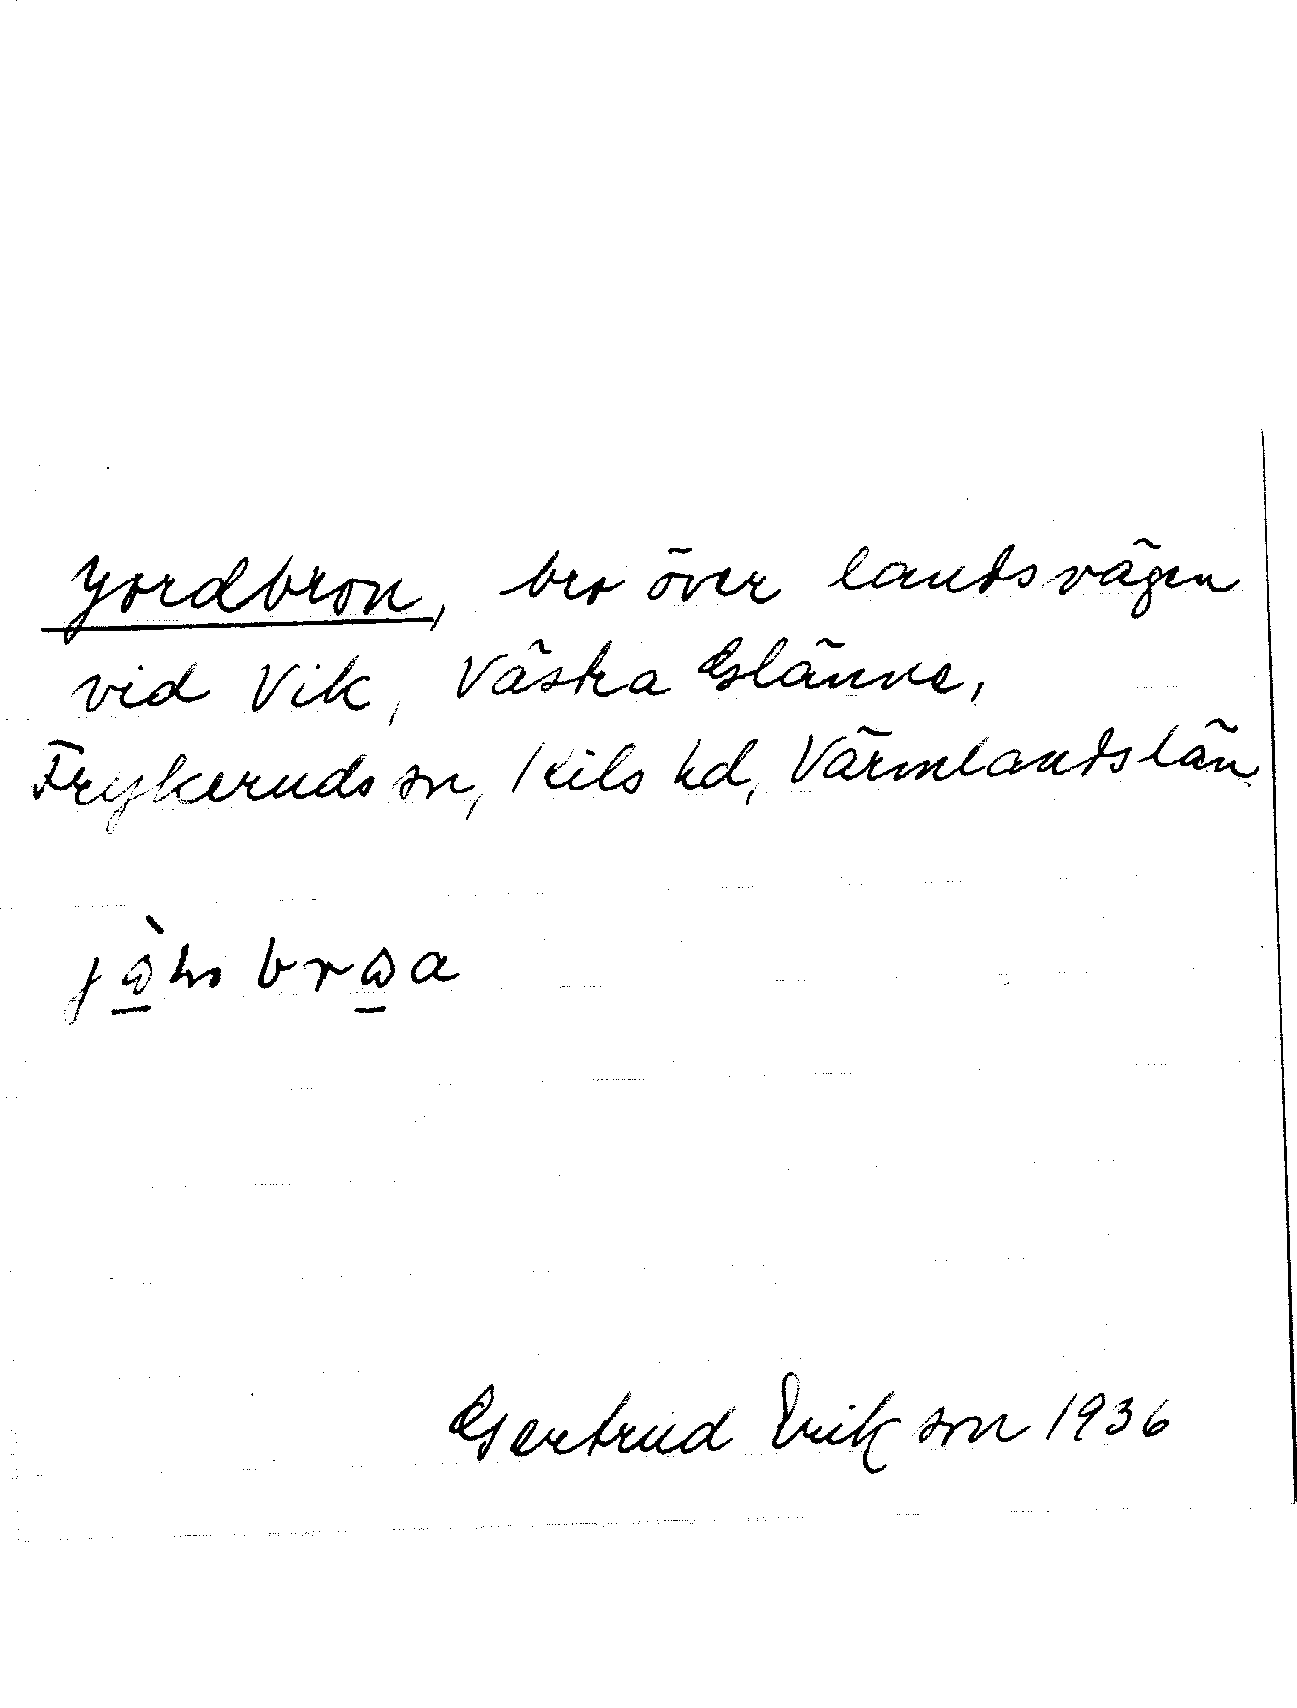 Jordbron, bro över landsvägen
vid Vik, Västra Glänne,
Frykeruds sn, Kils hd, Värmlands län
Gertrud Erikson 1936